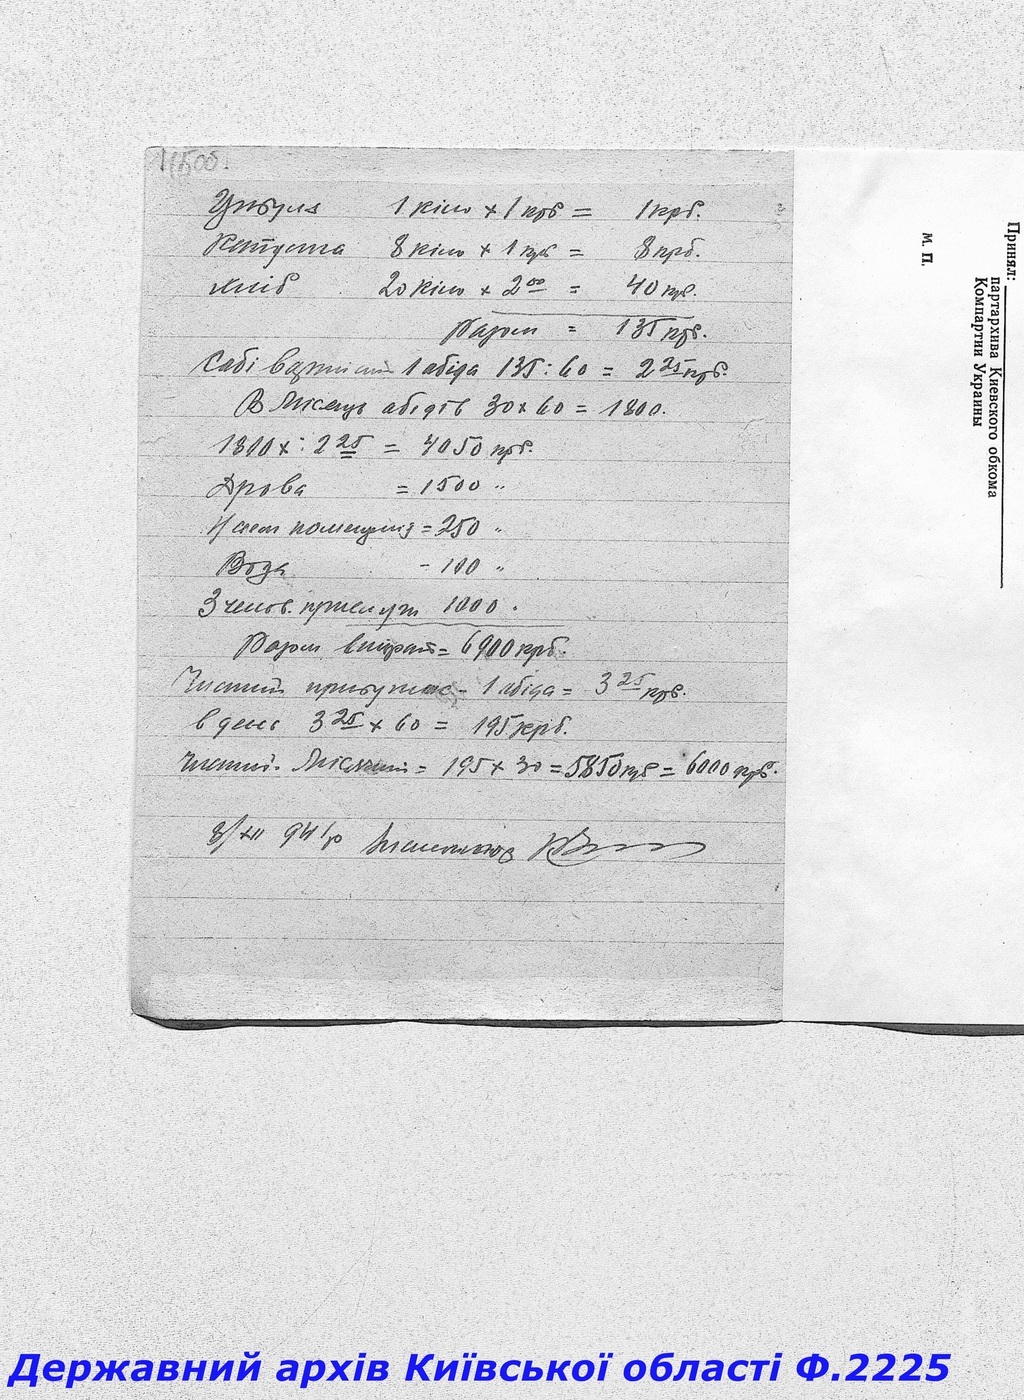 Цибуля 1 кіло × 1 крб = 1 крб.
Капуста 8 кіло × 1 крб = 8 крб.
хліб 20 кіло × 2 00 = 40 крб.
Разом = 135 крб.
Собі вартість 1 обіда 135 : 60 = 2 25 крб.
В місяць обідів 30 × 60 = 1800.
1800 × : 2 25 = 4050 крб.
Дрова = 1500 "
помещения = 250 "
Вода - 100 "
3 челов. прислуги 1000 "
Разом витрат = 6900 крб.
Чистий прибуток - 1 обіда = 3 25 крб.
в день 3 25 × 60 = 195 крб.
Чистий. Місячний = 195 × 30 = 5850 крб = 6000 крб.
8/XII 941 р
Принял:
партархива Киевского обкома
Компартии Украины
М. П.
Державний архів Київської області Ф.2225